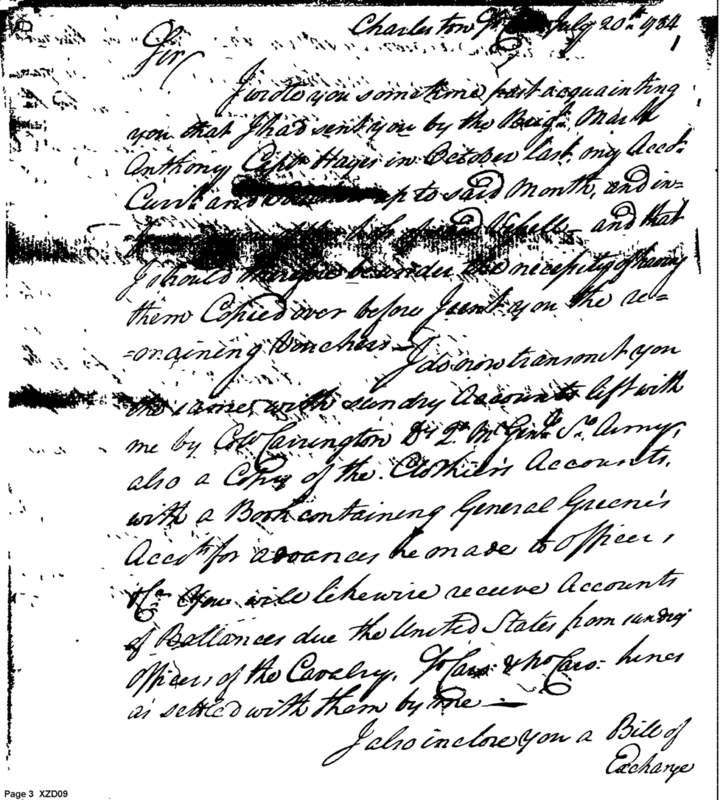 Charleston July 20th 1784
Sir
I wrote you sometime past acquainting
you that I had sent you by the Brigt. Mark
Anthony Capt. Hayes in October last, my Acct.
Currt. and up to said Month, and in=
and that
I should therefore be under the necessity of having
them Copied over before I sent you the re=
=maining Vouchers —
I do now transmit you
the same, with sundry Accounts left with
me by Colo. Carrington Dy. Q. M. Genl. So. Army,
also a Copy of the Clothier's Accounts,
with a Book containing General Greene's
Accts. for advances he made to Officers
&Ca. You will likewise receive Accounts
of Ballances due the United States from sundry
Officers of the Cavalry, So. Caro. & No. Caro. lines
as settled with them by me —
I also inclose you a Bill of
Exchange
Page 3 XZD09